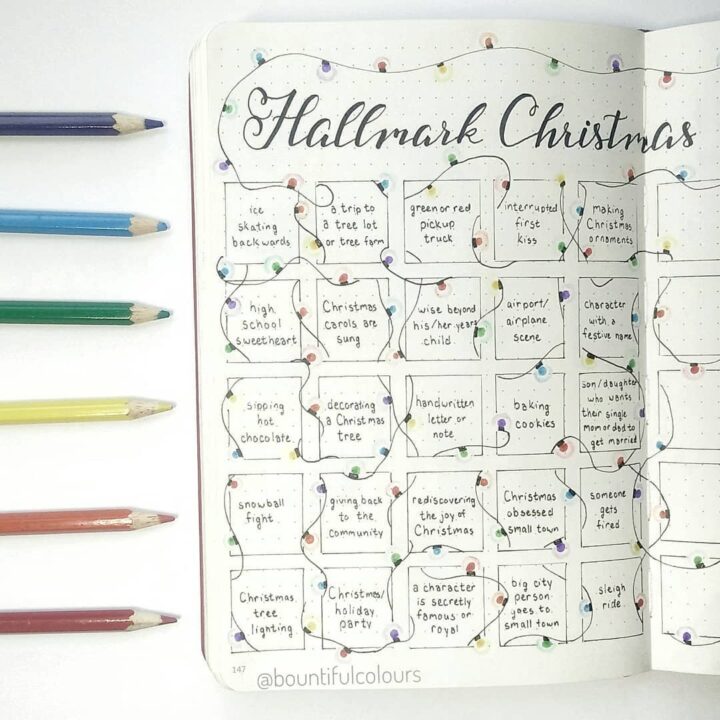 Hallmark Christmas
ice
skating
backwards
a trip to
a tree lot
or tree farm
green or red
pickup
truck
interrupted
first
kiss
making
Christmas
ornaments
high
school
sweetheart
Christmas
carols are
sung
wise beyond
his/her years
child
airport/
airplane
scene
character
with a
festive name
sipping
hot
chocolate
decorating
a Christmas
tree
handwritten
letter or
note
baking
cookies
son/daughter
who wants
their single
Mom or dad to
get married
snowball
fight
giving back
to the
community
rediscovering
the joy of
Christmas
Christmas
obsessed
small town
someone
gets
fired
Christmas
tree
lighting
Christmas/
holiday
party
a character
is secretly
famous or
royal
big city
person
goes to
small town
sleigh
ride
147
@bountifulcolours